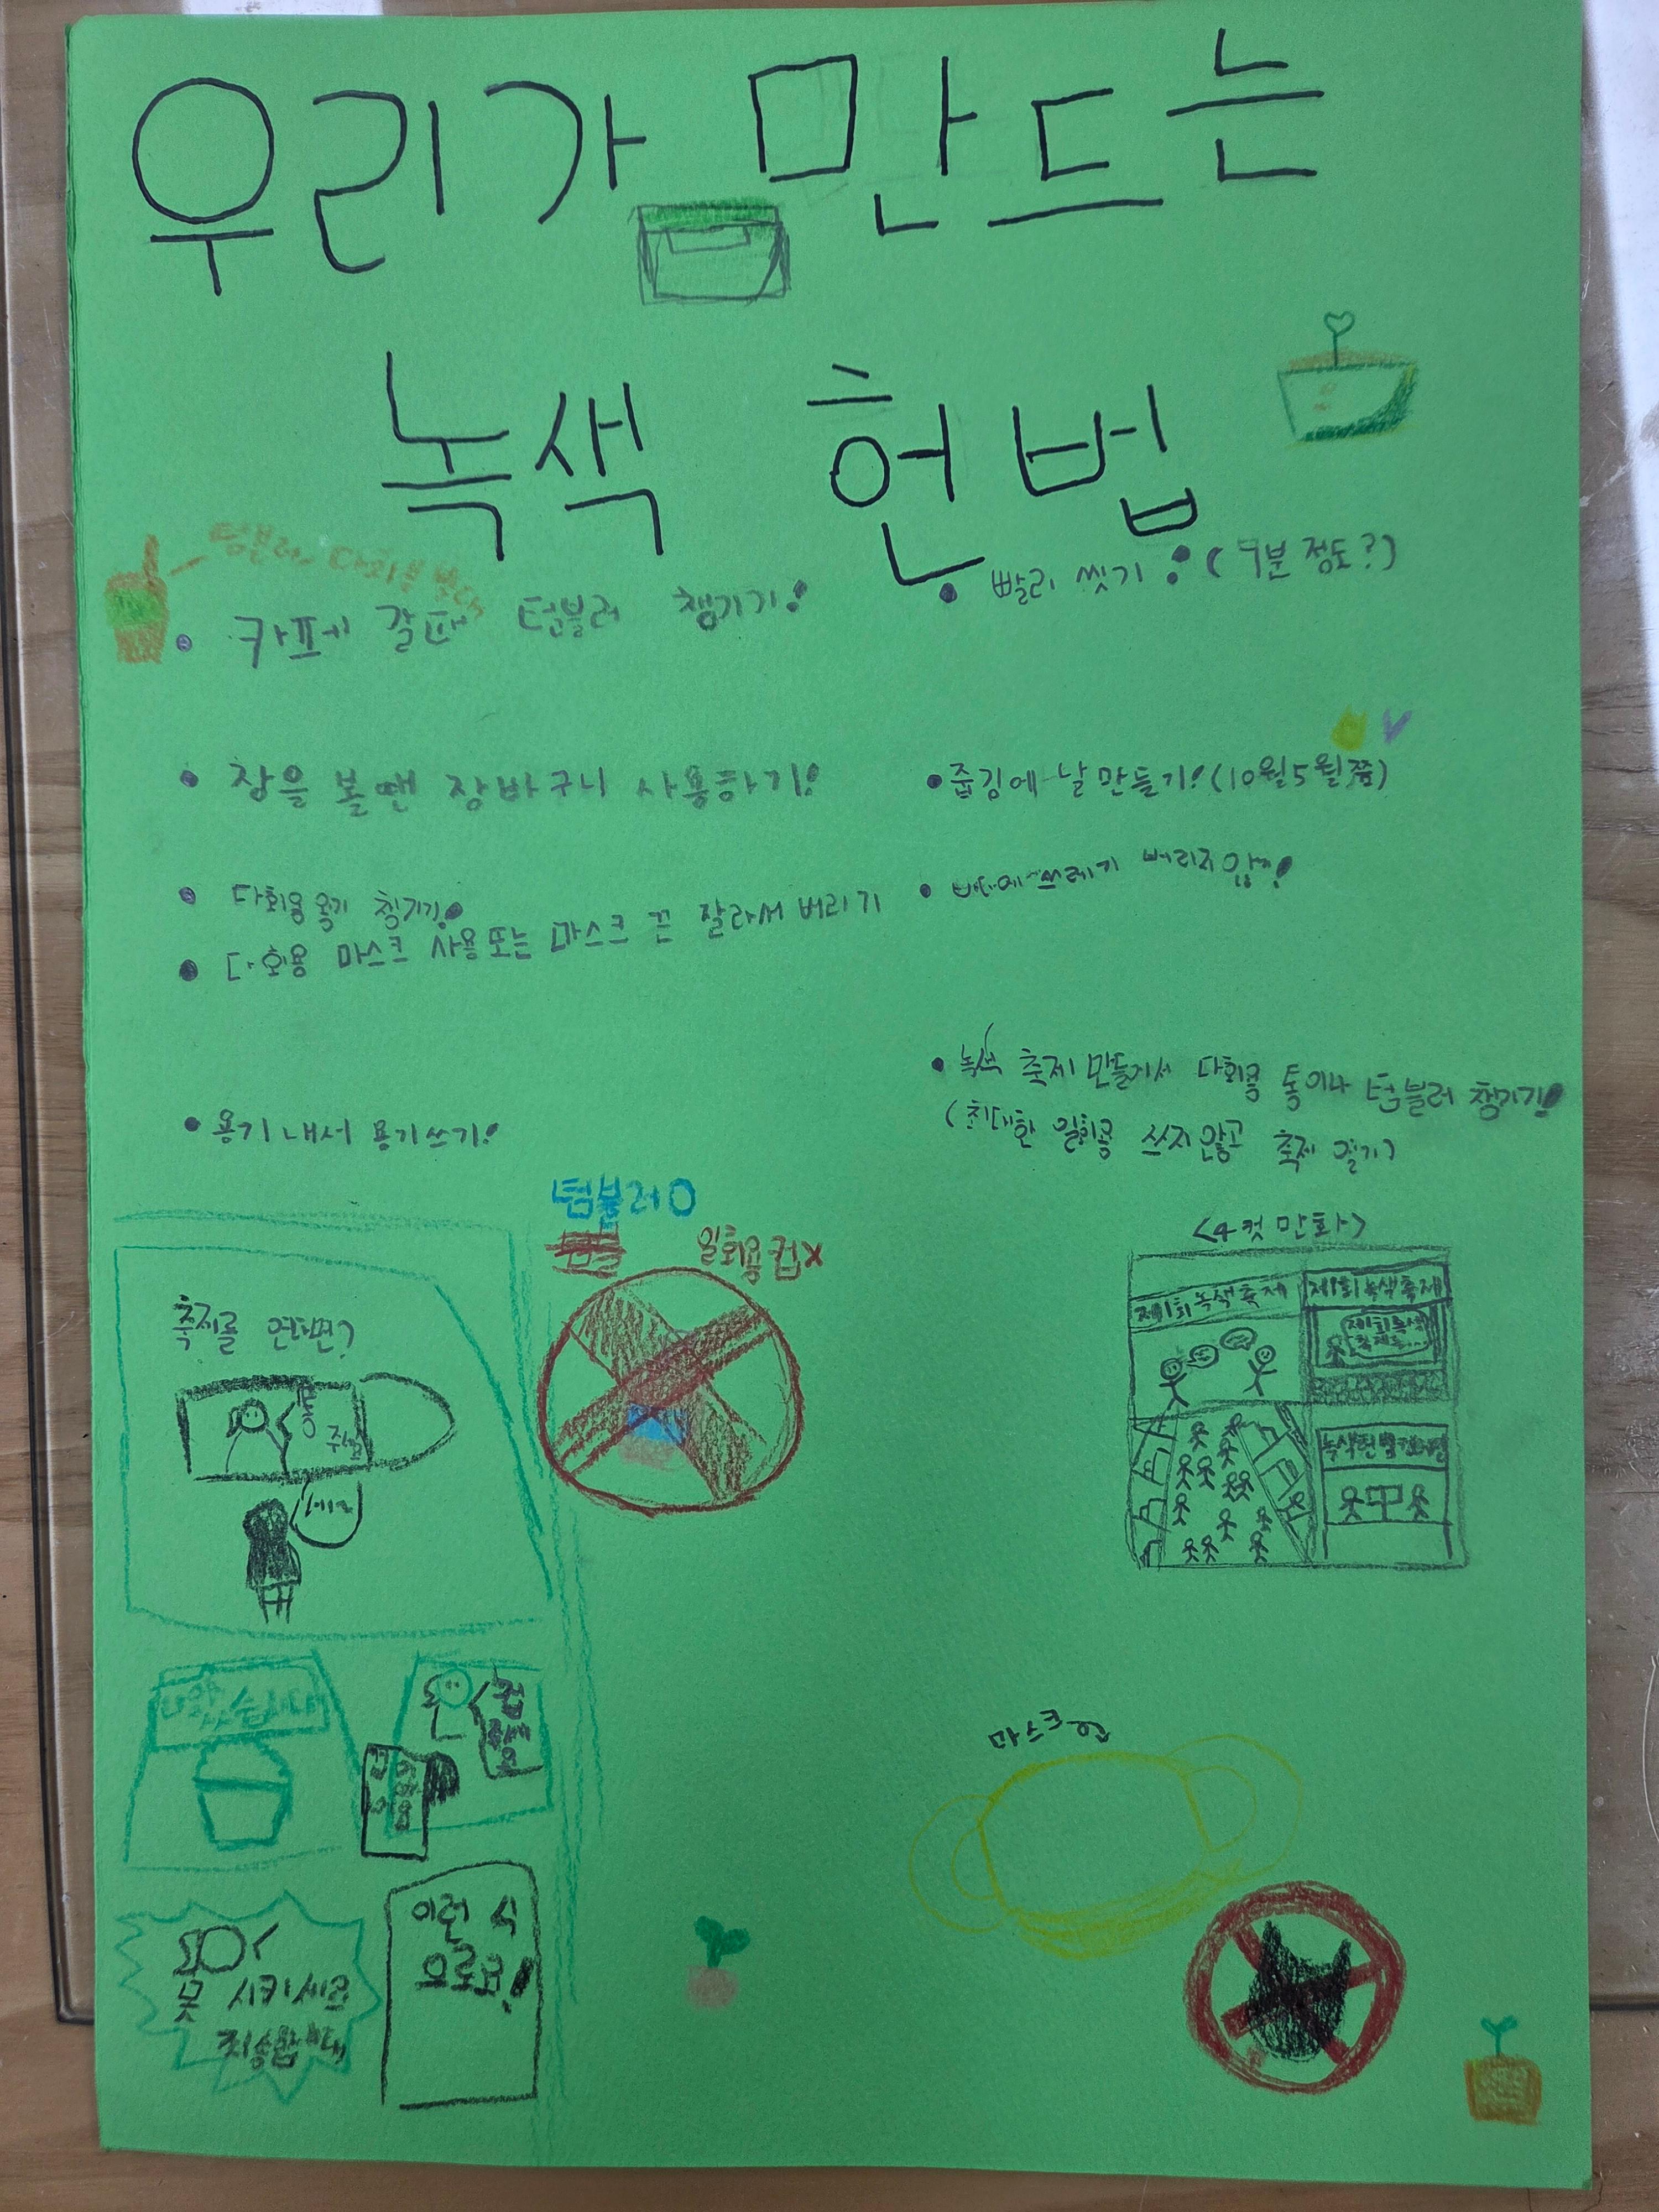 우리가 만드는
녹색 헌법
텀블러나 다회용
카페 갈땐 텀블러 챙기기!
장을 볼땐 장바구니 사용하기!
다회용 용기 챙기기!
다회용 마스크 사용 또는 마스크 끈 잘라서 버리기
용기 내서 용기쓰기!
빨리 씻기! (9분 정도?)
줍깅에 날 만들기! (10월 5월쯤)
쓰레기 버리지 않기!
녹색 축제 만들어서 다회용 통이나 텀블러 챙기기!
(최대한 일회용 쓰지 않고 축제 열기)
텀블러 O
일회용 컵 X
축제를 연다면?
통
네~
나왔습니다
컵
주세요
컵
이런 식
으로요!
못 시키세요
죄송합니다
<4컷 만화>
제1회 녹색축제
제1회 녹색축제
제1회 녹색
축제는...
마스크